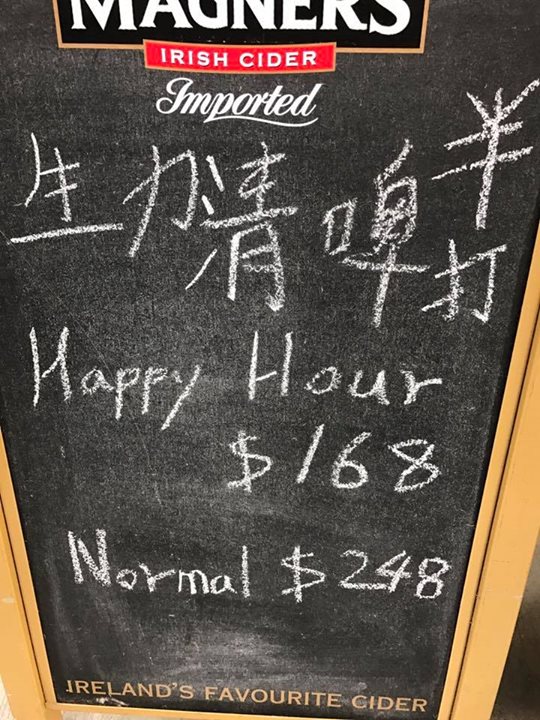 MAGNERS
IRISH CIDER
Imported
生力清啤 半打
Happy Hour
$168
Normal $248
IRELAND'S FAVOURITE CIDER